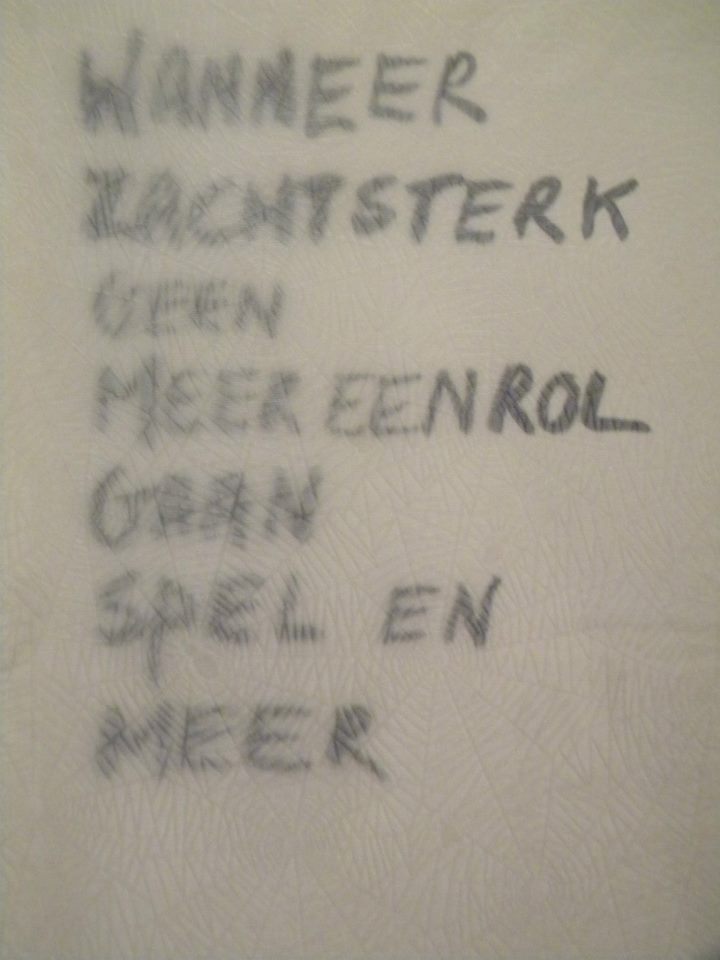 WANNEER
ZACHTSTERK
GEEN
MEER EEN ROL
GAAN
SPEL EN
MEER